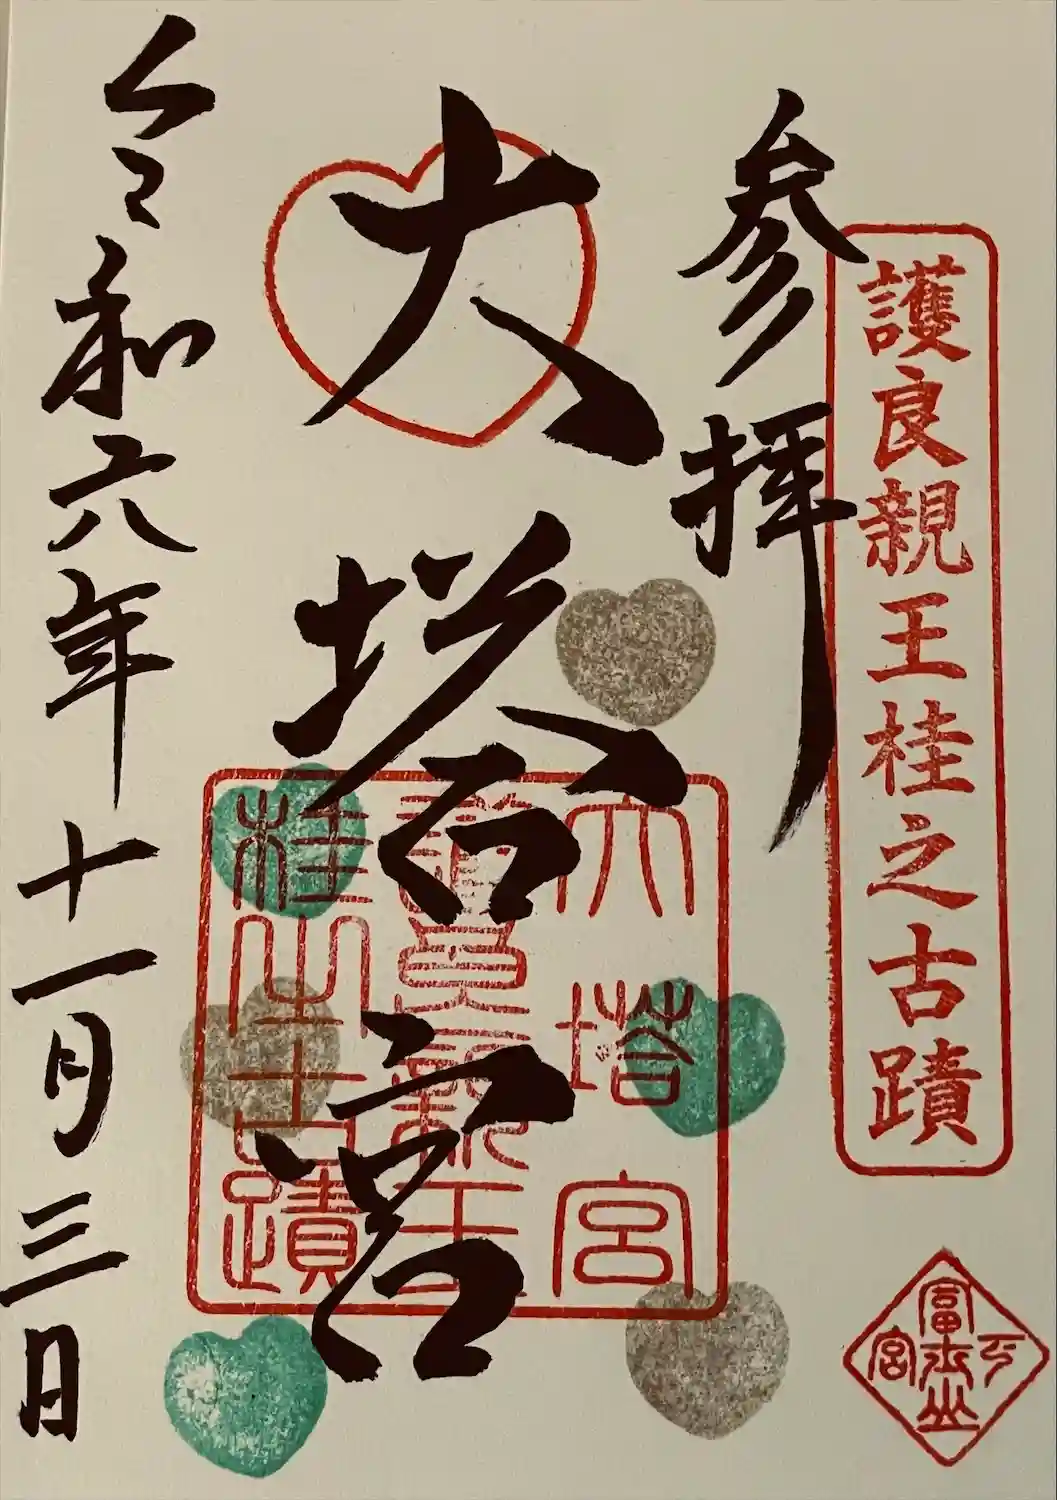 護良親王桂之古蹟
参拝
大塔宮
大塔宮
護良親王
桂之古蹟
令和六年十一月三日